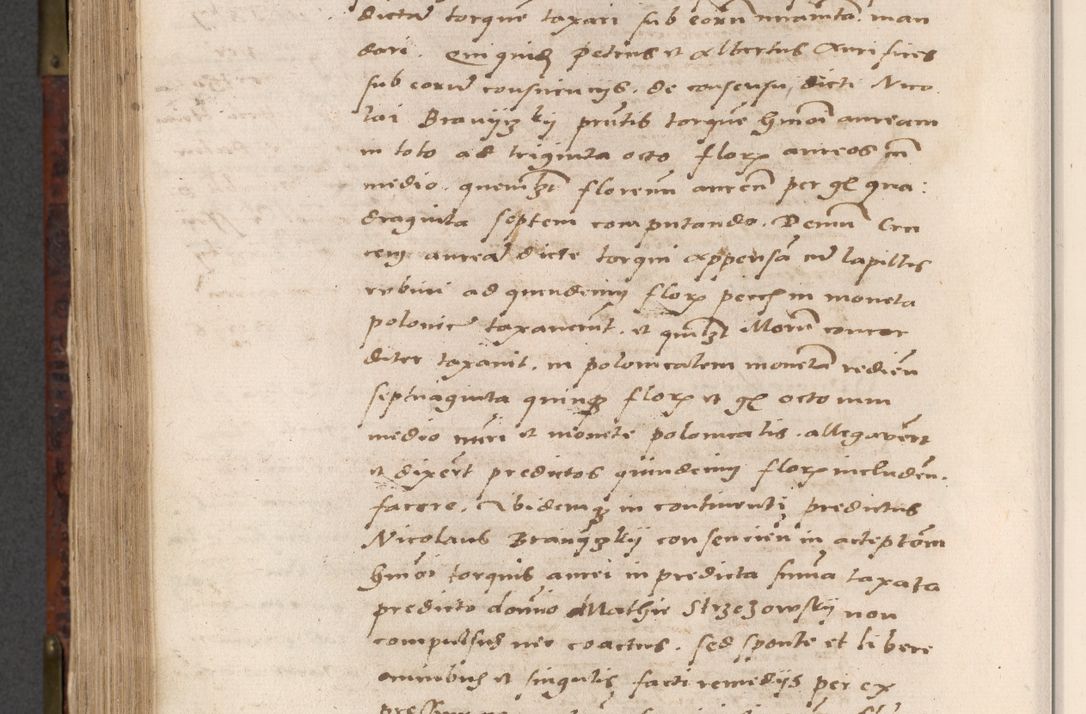 dictam torquem taxari sub eorum iuramento man
dari. Qui quidem petrus et Albertus Aurifices
sub eorum conscienciis. de consensu dicti Nico
lai Branyyzky prntis torquem hmoi auream
in toto ad triginta octo flor aureos cum
medio. quemlibet florenum aureum per gl qua:
draginta septem computando. Demum Cru
cem auream dicte torqui appensam cum lapillis
rubini ad quindecim flor pecch in moneta
polonice taxaverunt. et quilibet Morum concor
diter taxavit. in polonicalem monetam redien
septuaginta quinque flor et gl octo cum
medio nuri et monete polonicalis. allegavert
et dixert predictos quindecim flor includen.
facere. Ibidemque in continenti predictus
Nicolaus Branyzky consencien in acceptom
hmoi torquis aurei in predicta summa taxata
predicto domino Mathie Strzezowsky non
compulsus nec coactus. sed sponte et libere
omnibus et singulis facti remediis per ex